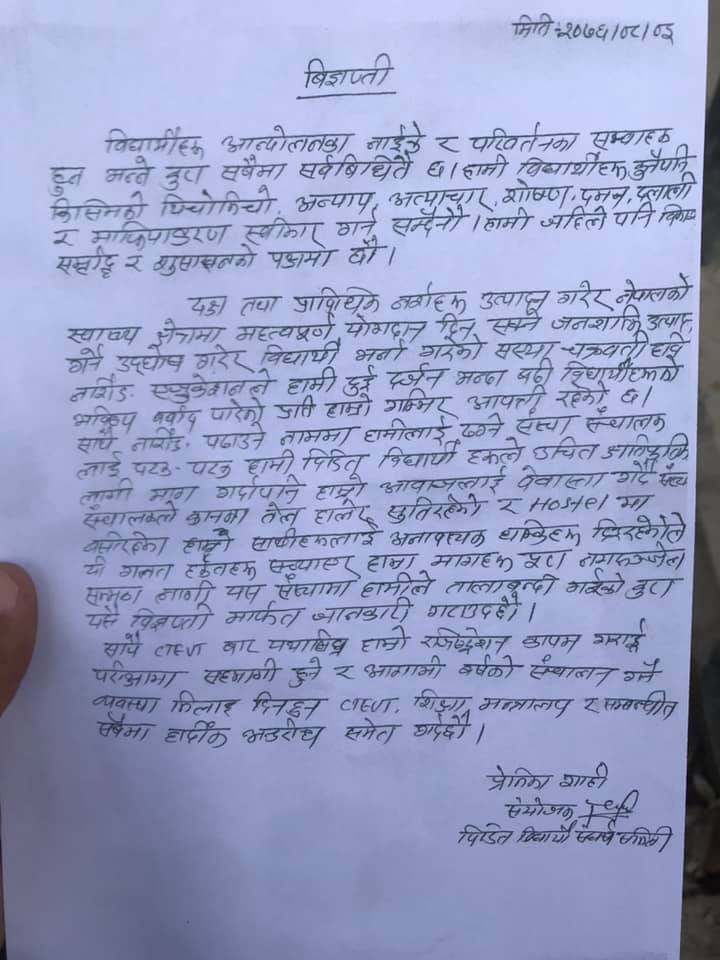 मिति: २०७६/०८/०३
बिज्ञप्ती
विद्यार्थीहरू आन्दोलनका नाईके र परिवर्तनका सम्वाहक
हुन भन्ने कुरा सबैमा सर्वबिधितै छ। हामी विद्यार्थीहरू कुनैपनि
किसिमको थिचोमिचो, अन्याय, अत्याचार, शोषण, दमन, दलाली
र माफियाकरण स्वीकार गर्न सक्दैनौ। हामी जहिले पनि विकास
समृद्धि र सुशासनको पक्षमा छौ।
दक्ष तथा प्राविधिक नर्सहरू उत्पादन गरेर नेपालको
स्वास्थ्य क्षेत्रमा महत्वपूर्ण योगदान दिन सक्ने जनशक्ति उत्पादन
गर्ने उदघोष गरेर विद्यार्थी भर्ना गरेको संस्था चक्रवर्ती हाबि
नर्सीङ एजुकेशनले हामी दुई दर्जन भन्दा बढी विद्यार्थीहरूको
भविष्य बर्बाद पारेको प्रति हाम्रो गम्भिर आपत्ती रहेको छ।
साथै नर्सीङ पढाउने नाममा हामीलाई ठग्ने संस्था संचालक
लाई पटक-पटक हामी पिडित विद्यार्थी हरूले उचित क्षतिपूर्तिको
लागी माग गर्दापनि हाम्रो आवाजलाई वेवास्ता गर्दै संस्था
संचालकले कानमा तेल हालेर सुतिरहेको र Hostel मा
बसीरहेका हाम्रो साथीहरूलाई अनावश्यक धम्कीहरू दिइरहेकोले
यी गलत हर्कतहरू सच्याएर हाम्रा मागहरू पुरा नगरुञ्जेल
सम्मका लागी यस संस्थामा हामीले तालाबन्दी गरेको कुरा
यसै विज्ञप्ती मार्फत जानकारी गराउदछौ।
साथै CTEVT बाट यथासिघ्र हाम्रो रजिष्ट्रेशन कायम गराई
परिक्षामा सहभागी हुने र आगामी वर्षको संचालन गर्ने
व्यवस्था मिलाई दिनहुन CTEVT, शिक्षा मन्त्रालय र सम्बन्धीत
सबैमा हार्दीक अनुरोध समेत गर्दछौ।
प्रेनिका शाही
संयोजक
पिडित विद्यार्थी संघर्ष समिती